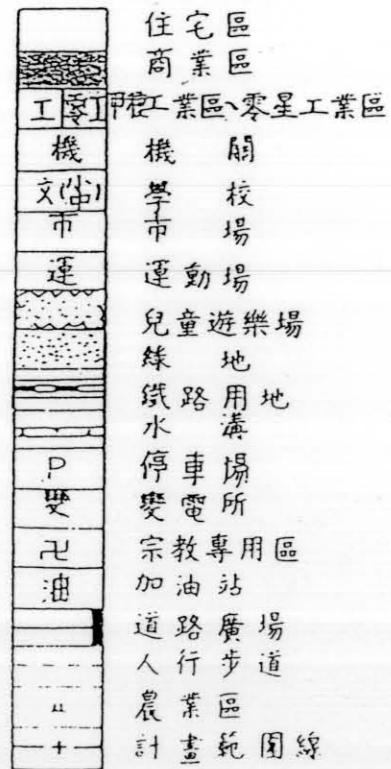 住宅區
商業區
工 零工 甲種工業區、零星工業區
機 機關
文(  ) 學校
市 市場
運 運動場
兒童遊樂場
綠地
鐵路用地
水溝
P 停車場
變 變電所
卍 宗教專用區
油 加油站
道路廣場
人行步道
農業區
計畫範圍線